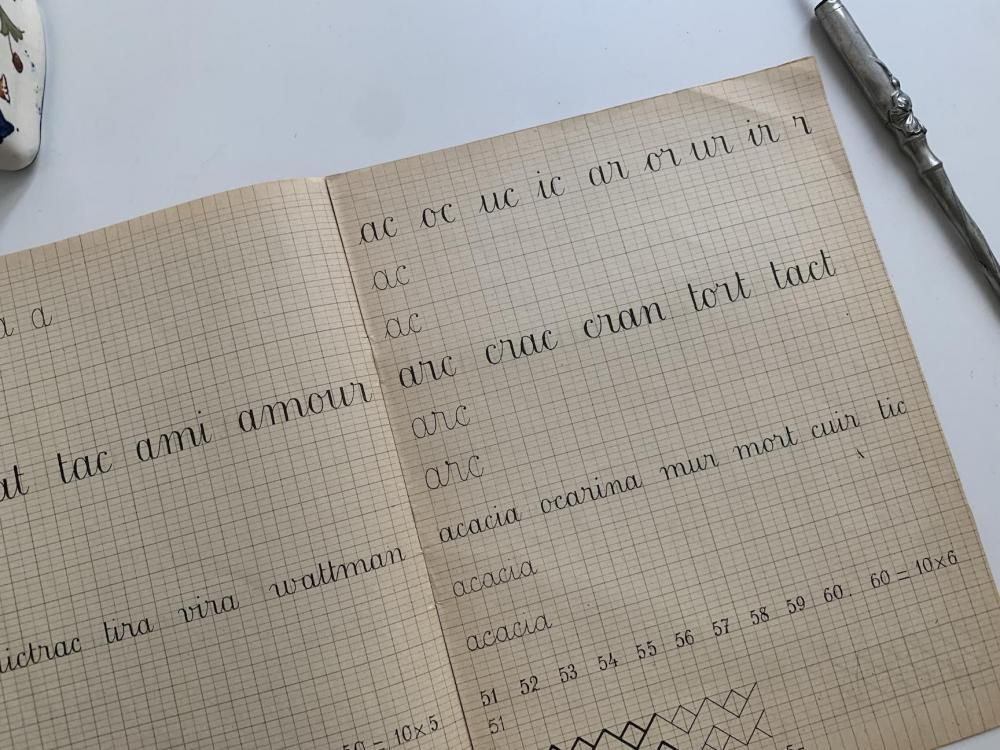 a a
tac ami amour
tira vira wattman
50 = 10×5
ac oc uc ic ar or ur ir r
ac
ac
arc crac cran tort tact
arc
arc
acacia ocarina mur mort cuir tic
acacia
acacia
51 52 53 54 55 56 57 58 59 60. 60 = 10×6
51